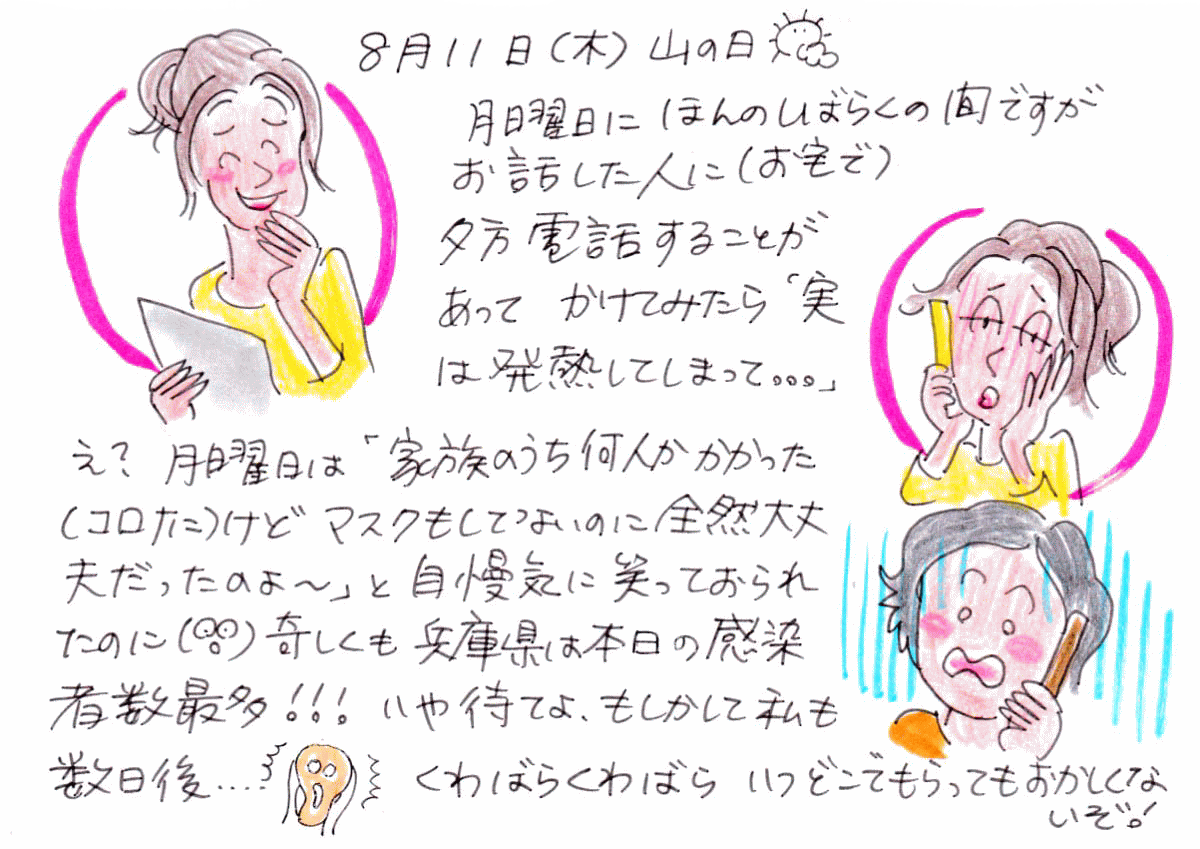 8月11日(木) 山の日
月曜日に ほんのしばらくの間ですが
お話した人に(お宅で)
夕方電話することが
あって かけてみたら「実
は発熱してしまって...」
え? 月曜日は「家族のうち何人かかかった
(コロナに)けど マスクもしてないのに全然大丈
夫だったのよ〜」と自慢気に笑っておられ
たのに 奇しくも兵庫県は本日の感染
者数最多!!! いや待てよ、もしかして私も
数日後.... くわばらくわばら いつどこでもらってもおかしくな
いぞ!